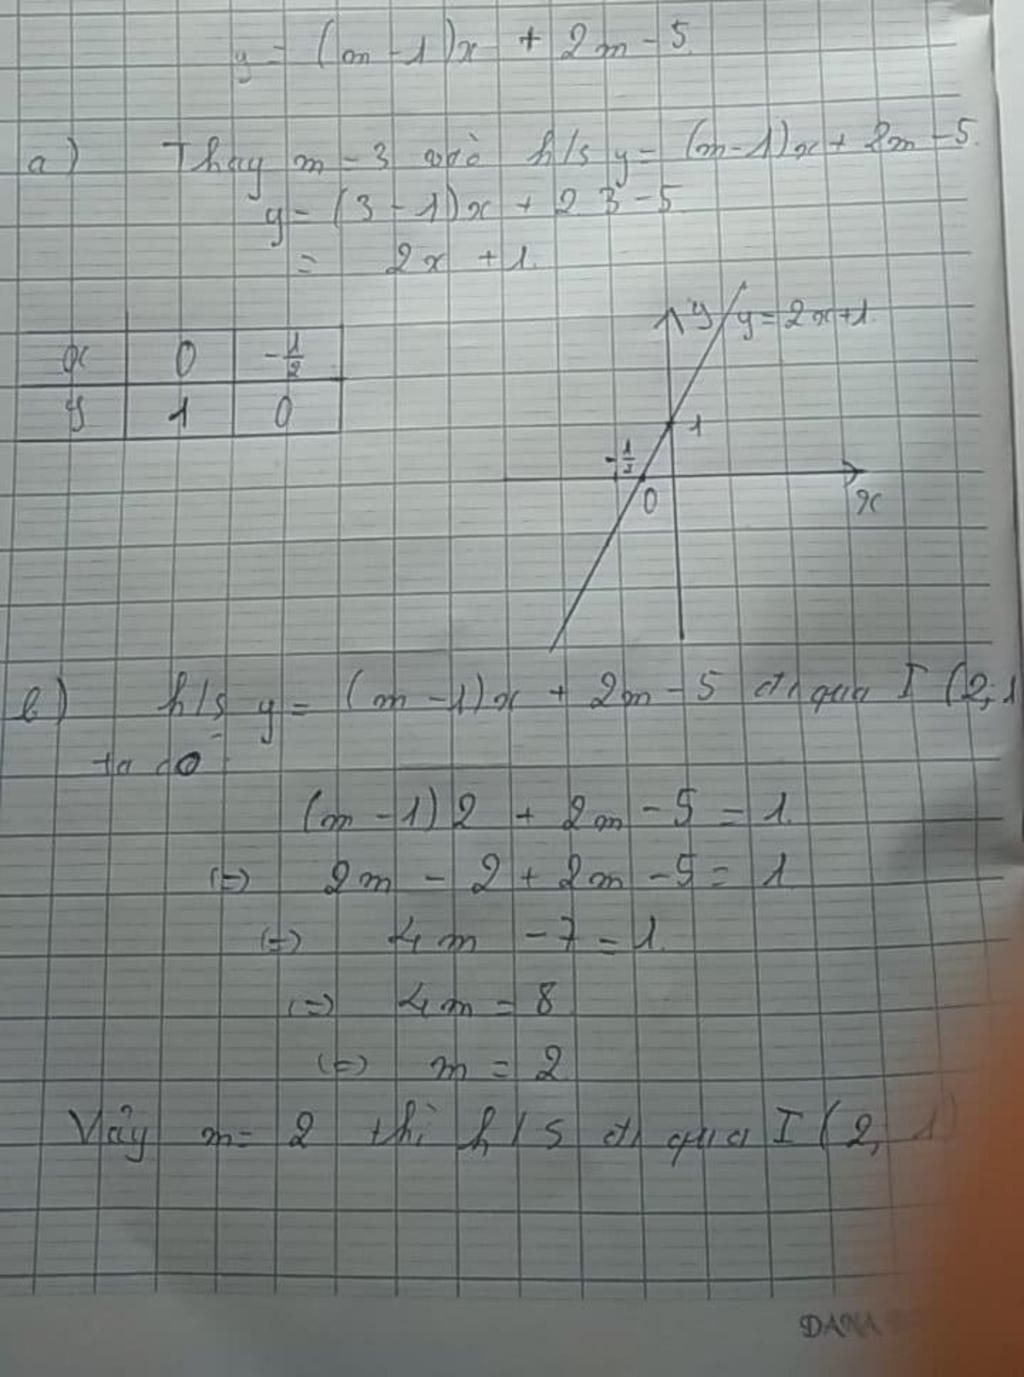 y = (m - 1)x + 2m - 5
a) Thay m = 3 vào h/s y = (m-1)x + 2m - 5.
y = (3 - 1)x + 2 3 - 5
= 2x + 1.
y y = 2x+1
x 0 -1/2
y 1 0
1
-1/2
0 x
b) h/s y = (m - 1)x + 2m - 5 đi qua I (2; 1
ta có
(m - 1) 2 + 2m - 5 = 1.
(=) 2m - 2 + 2m - 5 = 1
(=) 4m - 7 = 1.
(=) 4m = 8
(=) m = 2
Vậy m = 2 thì h/s đi qua I (2, 1)
DANA